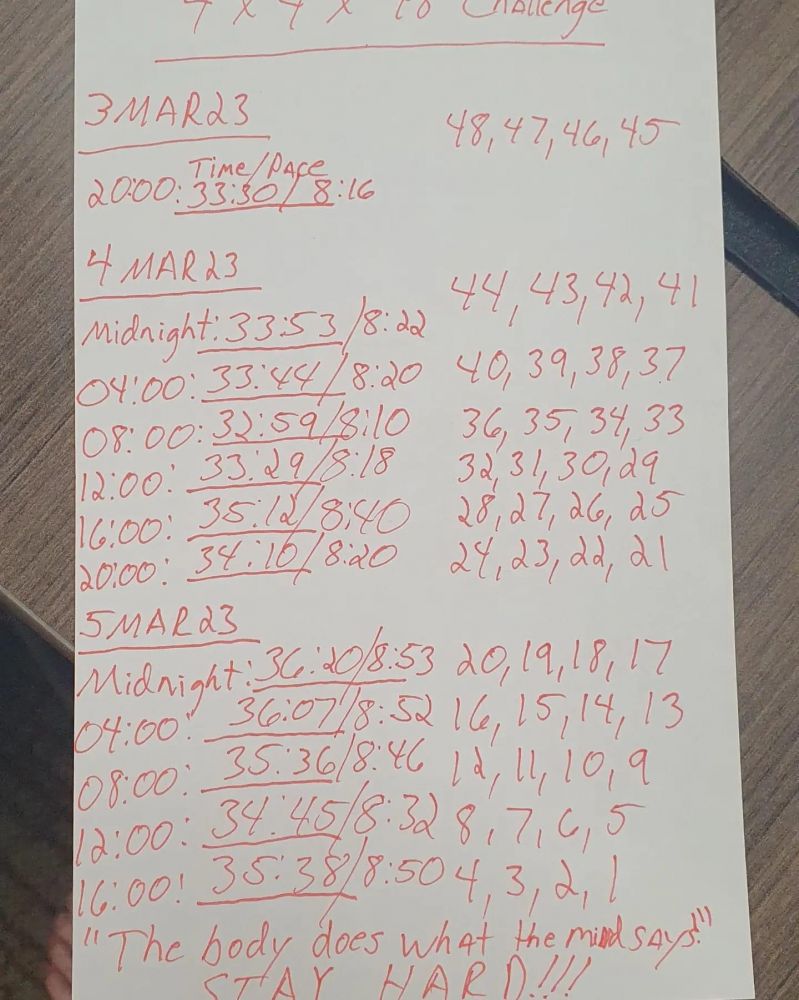 4 x 4 x 48 Challenge
3MAR23
48, 47, 46, 45
Time/Pace
20:00: 33:30 / 8:16
4 MAR23
44, 43, 42, 41
Midnight: 33:53 / 8:22
04:00: 33:44 / 8:20 40, 39, 38, 37
08:00: 32:59 / 8:10 36, 35, 34, 33
12:00: 33:29 / 8:18 32, 31, 30, 29
16:00: 35:12 / 8:40 28, 27, 26, 25
20:00: 34:10 / 8:20 24, 23, 22, 21
5MAR23
Midnight: 36:20 / 8:53 20, 19, 18, 17
04:00: 36:07 / 8:52 16, 15, 14, 13
08:00: 35:36 / 8:46 12, 11, 10, 9
12:00: 34:45 / 8:32 8, 7, 6, 5
16:00: 35:38 / 8:50 4, 3, 2, 1
"The body does what the mind says!"
STAY HARD!!!